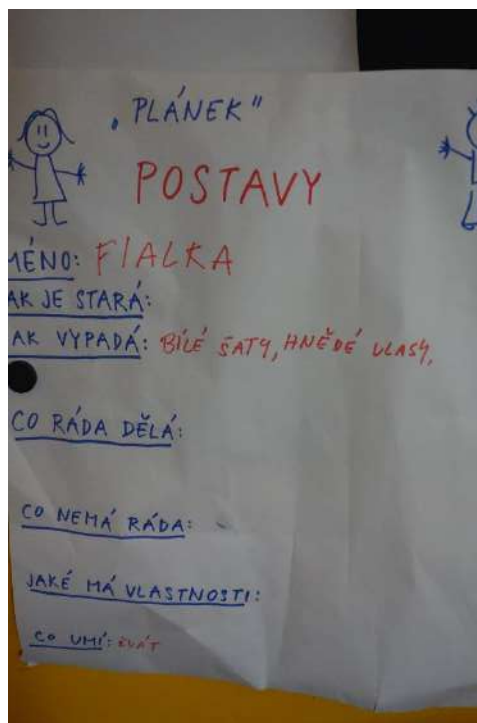 „PLÁNEK"
POSTAVY
MÉNO: FIALKA
AK JE STARÁ:
AK VYPADÁ: BÍLÉ ŠATY, HNĚDÉ VLASY,
CO RÁDA DĚLÁ:
CO NEMÁ RÁDA:
JAKÉ MÁ VLASTNOSTI:
CO UMÍ: